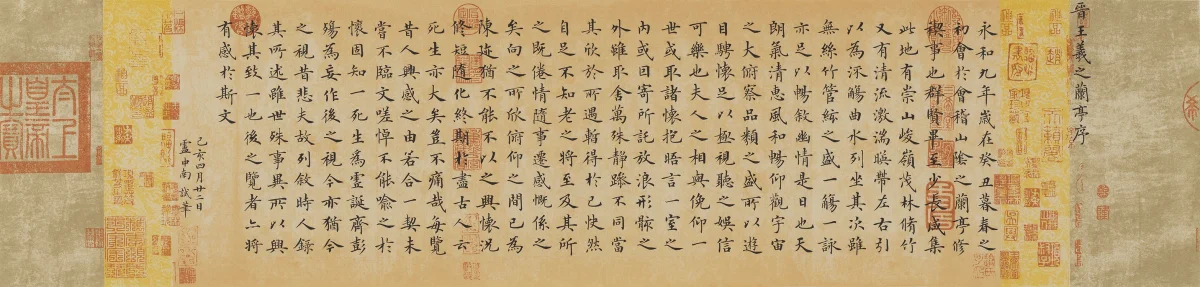 晋王羲之蘭亭序
永和九年歲在癸丑暮春之
初會於會稽山陰之蘭亭修
禊事也群賢畢至少長咸集
此地有崇山峻嶺茂林脩竹
又有清流激湍暎帶左右引
以為流觴曲水列坐其次雖
無絲竹管絃之盛一觴一詠
亦足以暢敘幽情是日也天
朗氣清惠風和暢仰觀宇宙
之大俯察品類之盛所以遊
目騁懷足以極視聽之娛信
可樂也夫人之相與俛仰一
世或取諸懷抱晤言一室之
內或因寄所託放浪形骸之
外雖取舍萬殊靜躁不同當
其欣於所遇暫得於己快然
自足不知老之將至及其所
之既倦情隨事遷感慨係之
矣向之所欣俯仰之間已為
陳迹猶不能不以之興懷況
修短隨化終期於盡古人云
死生亦大矣豈不痛哉每覽
昔人興感之由若合一契未
嘗不臨文嗟悼不能喻之於
懷固知一死生為虛誕齊彭
殤為妄作後之視今亦猶今
之視昔悲夫故列敘時人錄
其所述雖世殊事異所以興
懷其致一也後之覽者亦將
有感於斯文
己亥四月廿二日